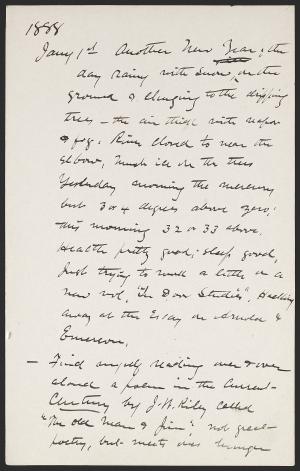 1888
Jany 1st Another New Year, the
day rainy with snow on the
ground & clinging to the dripping
trees — the air thick with vapor
& fog. River closed to near the
elbow, much ice on the trees
Yesterday morning the mercury
but 3 or 4 degrees above zero;
this morning 32 or 33 above.
Health pretty good; sleep good,
Just trying to work a little on a
new vol, "In Door Studies", Hacking
away at the Essay on Arnold &
Emerson.
— Find myself reading over & over
aloud a poem in the current
Century by J. W. Riley called
"The old Man & Jim", not great
poetry, but meets one's hunger